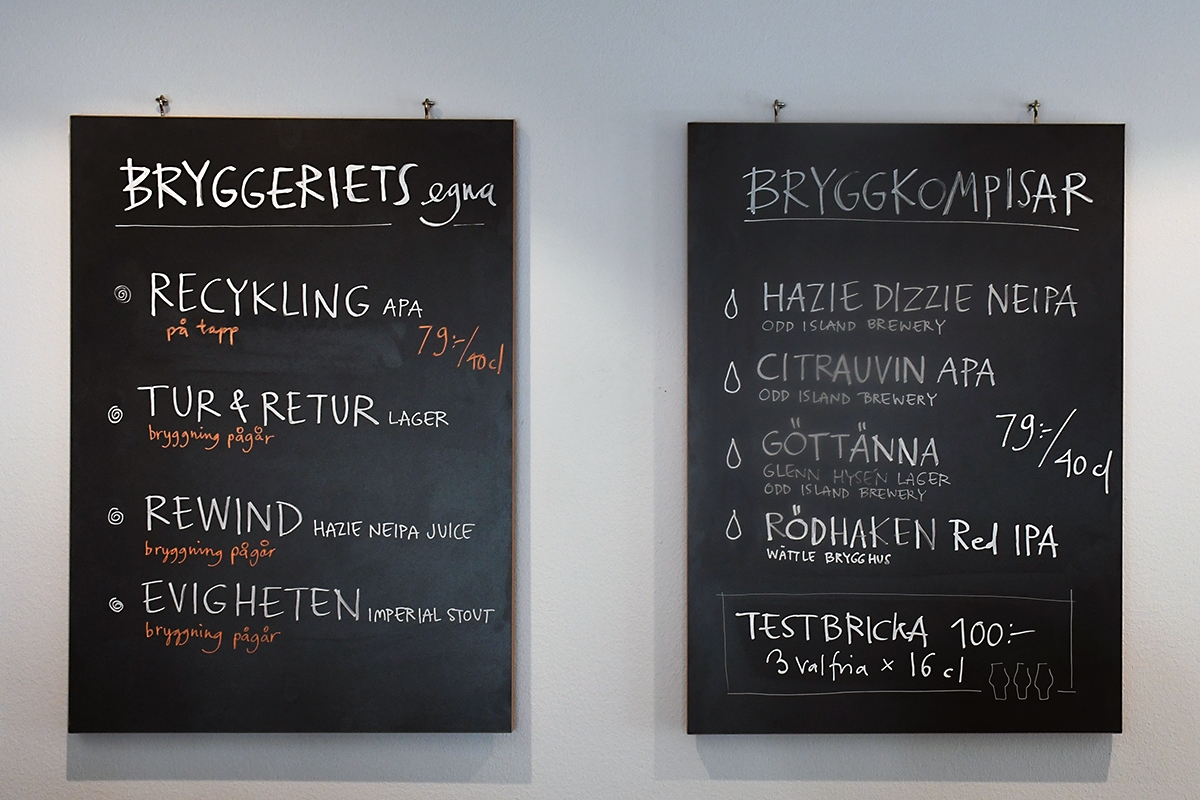 BRYGGERIETS egna
RECYKLING APA
på tapp
79:-/40 cl
TUR & RETUR LAGER
bryggning pågår
REWIND HAZIE NEIPA JUICE
bryggning pågår
EVIGHETEN IMPERIAL STOUT
bryggning pågår
BRYGGKOMPISAR
HAZIE DIZZIE NEIPA
ODD ISLAND BREWERY
CITRAUVIN APA
ODD ISLAND BREWERY
GÖTTÄNNA
GLENN HYSÉN LAGER
ODD ISLAND BREWERY
79:-/40 cl
RÖDHAKEN Red IPA
WÄTTLE BRYGGHUS
TESTBRICKA 100:-
3 valfria × 16 cl